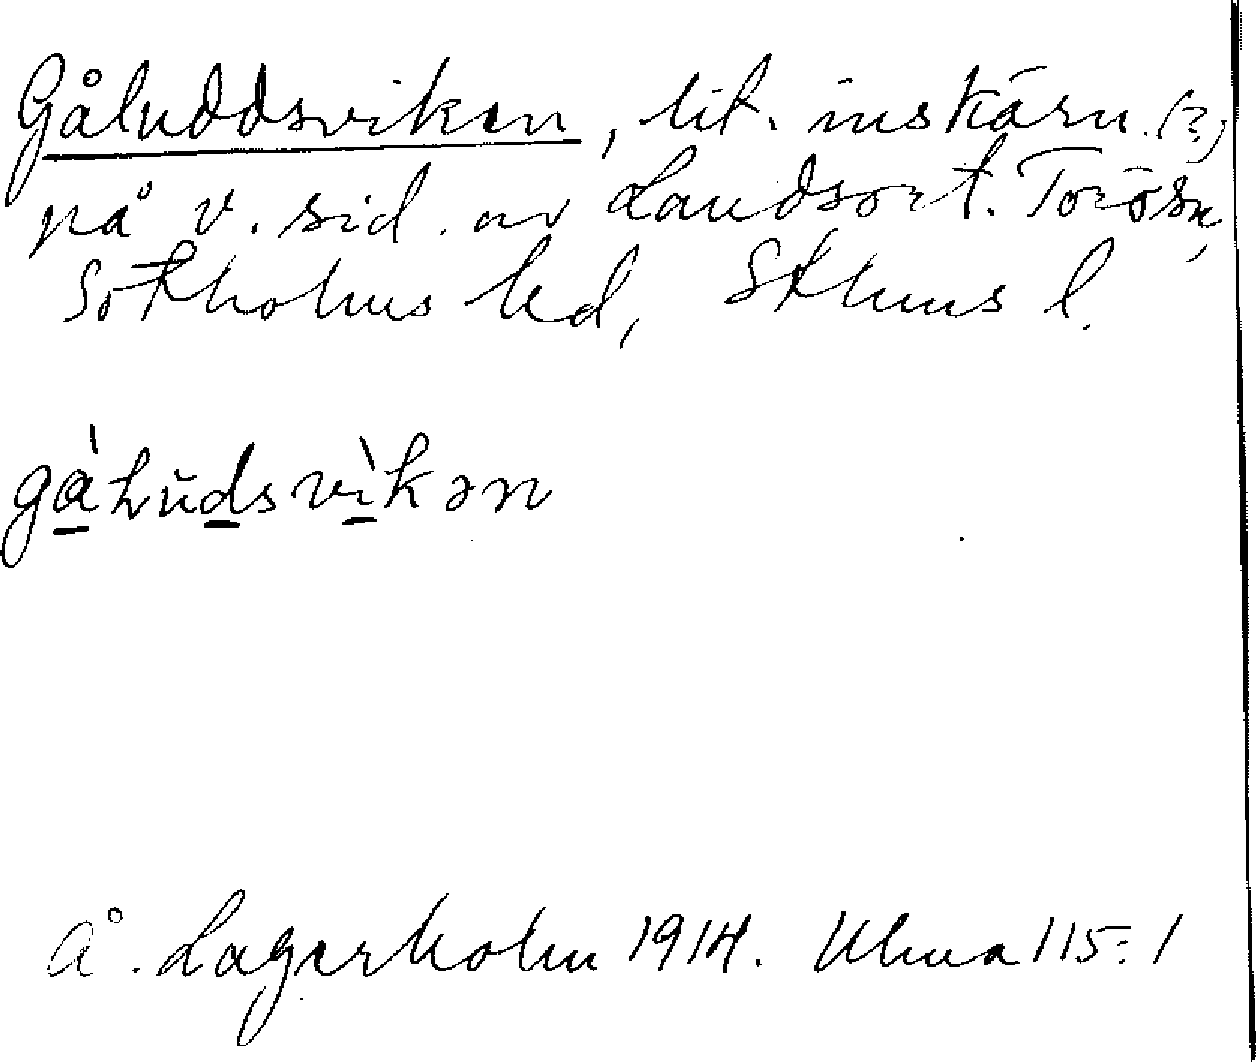 Gåluddsviken, lit. inskärn. (?)
på v. sid. av Landsort. Torösn,
Sotholms hd, Sthlms l.
gàLŭdsvìkən
Å. Lagerholm 1914. Ulma 115:1